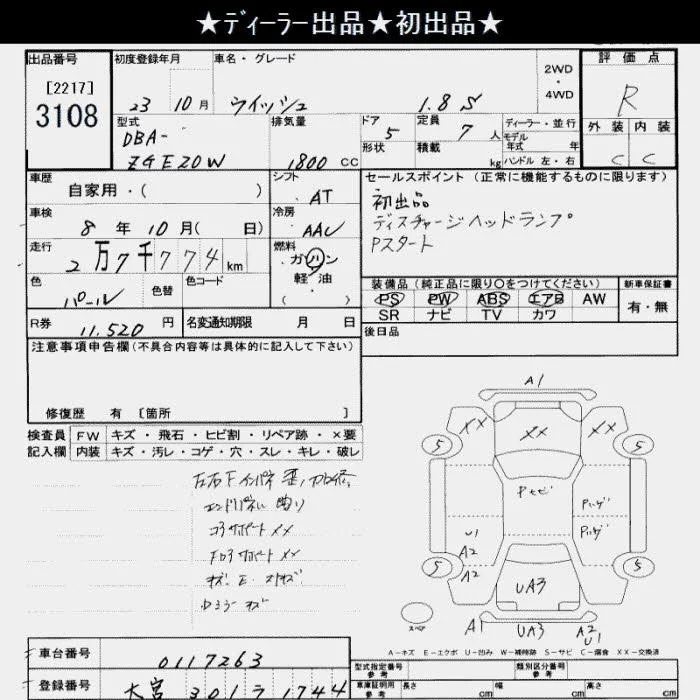 ★ディーラー出品★初出品★
出品番号
[2217]
3108
初度登録年月
23 10月
車名・グレード
ウイッシュ 1.8 S
2WD
・
4WD
評価点
R
外装 内装
C C
型式
DBA-
ZGE20W
排気量
1800 CC
ドア
5
形状
定員
7 人
積載
kg
ディーラー・並行
モデル
年式 年
ハンドル 左・右
車歴
自家用・( )
シフト
AT
車検
8 年 10 月( 日)
冷房
AAC
走行
2万7千774 km
燃料
ガソリン
軽油
( )
色
パール
色替
色コード
R券
11,520 円
名変通知期限 月 日
セールスポイント (正常に機能するものに限ります)
初出品
ディスチャージヘッドランプ
Pスタート
装備品 (純正品に限り○をつけてください)
新車保証書
PS PW ABS エアB AW
SR ナビ TV カワ
有・無
後日品
注意事項申告欄(不具合内容等は具体的に記入して下さい)
修復歴 有 〔箇所 〕
検査員
記入欄
FW キズ・飛石・ヒビ割・リペア跡・×要
内装 キズ・汚レ・コゲ・穴・スレ・キレ・破レ
エンドパネル
コアサポート XX
サポート XX
A1
XX XX XX
5 5
Pセビ
U1
A2
A2
5 5
UA3
スペア
A1 UA3 A2
U1
A-キズ E-エクボ U-凹み W-補時跡 S-サビ C-腐食 XX-交換済
車台番号
0117263
登録番号
大宮 301 ラ 1744
型式指定番号
参考
類別区分番号
参考
車庫証明用
参考
長さ cm
幅 cm
高さ cm